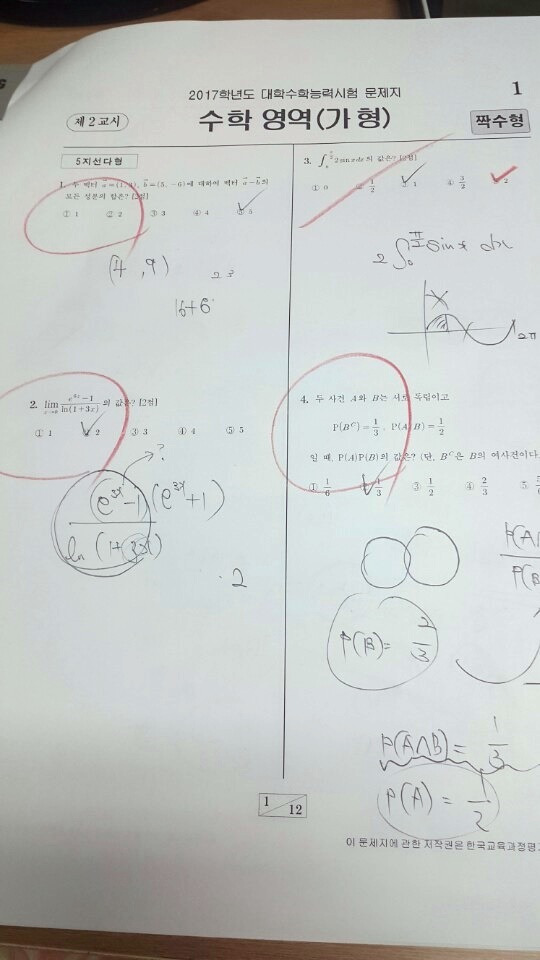 2017학년도 대학수학능력시험 문제지
1
제 2 교시
수학 영역(가형)
짝수형
5지선다형
1. 두 벡터 a⃗=(1, 3), b⃗=(5, -6)에 대하여 벡터 a⃗-b⃗의
모든 성분의 합은? [2점]
① 1 ② 2 ③ 3 ④ 4 ⑤ 5
(4 , 9)
16+6
2. lim x→0 (e^{6x}-1)/ln(1+3x) 의 값은? [2점]
① 1 ② 2 ③ 3 ④ 4 ⑤ 5
?
(e^{3x}-1)(e^{3x}+1)
ln (1+3x)
2
3. ∫_0^{π/2} 2 sin x dx 의 값은? [2점]
① 0 ② 1/2 ③ 1 ④ 3/2 ⑤ 2
2 ∫_0^{π/2} sin x dx
2π
4. 두 사건 A와 B는 서로 독립이고
P(B^C)=1/3, P(A|B)=1/2
일 때, P(A)P(B)의 값은? (단, B^C은 B의 여사건이다
① 1/6 ② 1/3 ③ 1/2 ④ 2/3 ⑤
P(A∩
P(B
P(B)= 2/3
P(A∩B)= 1/3
P(A) = 1/2
1/12
이 문제지에 관한 저작권은 한국교육과정평